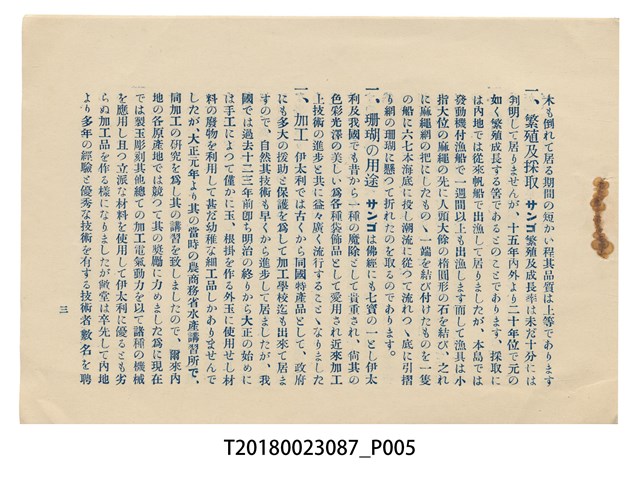 木も倒れて居る期間の短かい程其品質は上等であります
一、繁殖及採取 サンゴ繁殖及成長率は未だ十分には
判明して居りませんが、十五年內外より二十年位で元の
如く繁殖成長する筈であるとのことであります、採取に
は內地では從來帆船で出漁して居りましたが、本島では
發動機付漁船で一週間以上も出漁します而して漁具は小
指大位の麻繩の先に人頭大餘の楕圓形の石を結び、之れ
に麻繩網の把にしたものゝ一端を結び付けたものを一隻
の船に六七本海底に投し潮流に從つて流れつゝ底に引摺
り網の珊瑚に懸つて折れたのを取るのであります。
一、珊瑚の用途 サンゴは佛經にも七寶の一とし伊太
利及我國でも昔から一種の魔除として貴重され、尙其の
色彩光澤の美しい爲各種裝飾品として愛用され近來加工
上技術の進步と共に益々廣く流行することゝなりました
一、加工 伊太利では古くから同國特產品として、政府
にも多大の援助と保護を爲して加工學校迄も出來て居ま
すので、自然其技術も早くから進步して居ましたが、我
國では過去十二三年前卽ち明治の終りから大正の始めに
は手工によつて僅かに玉、根掛を作る外玉に使用せし材
料の廢物を利用して甚だ幼稚な細工品しかありませんで
したが、大正元年より其の當時の農商務省水產講習所で、
同加工の研究を爲し其の講習を致しましたので、爾來內
地の各原產地では競つて其の獎勵に力めました爲に現在
では製玉彫刻其他總ての加工電氣動力を以て諸種の機械
を應用し且つ立派な材料を使用して伊太利に優るとも劣
らぬ加工品を作る樣になりましたが敝堂は卒先して內地
より多年の經驗と優秀な技術を有する技術者數名を聘
三
T20180023087_P005